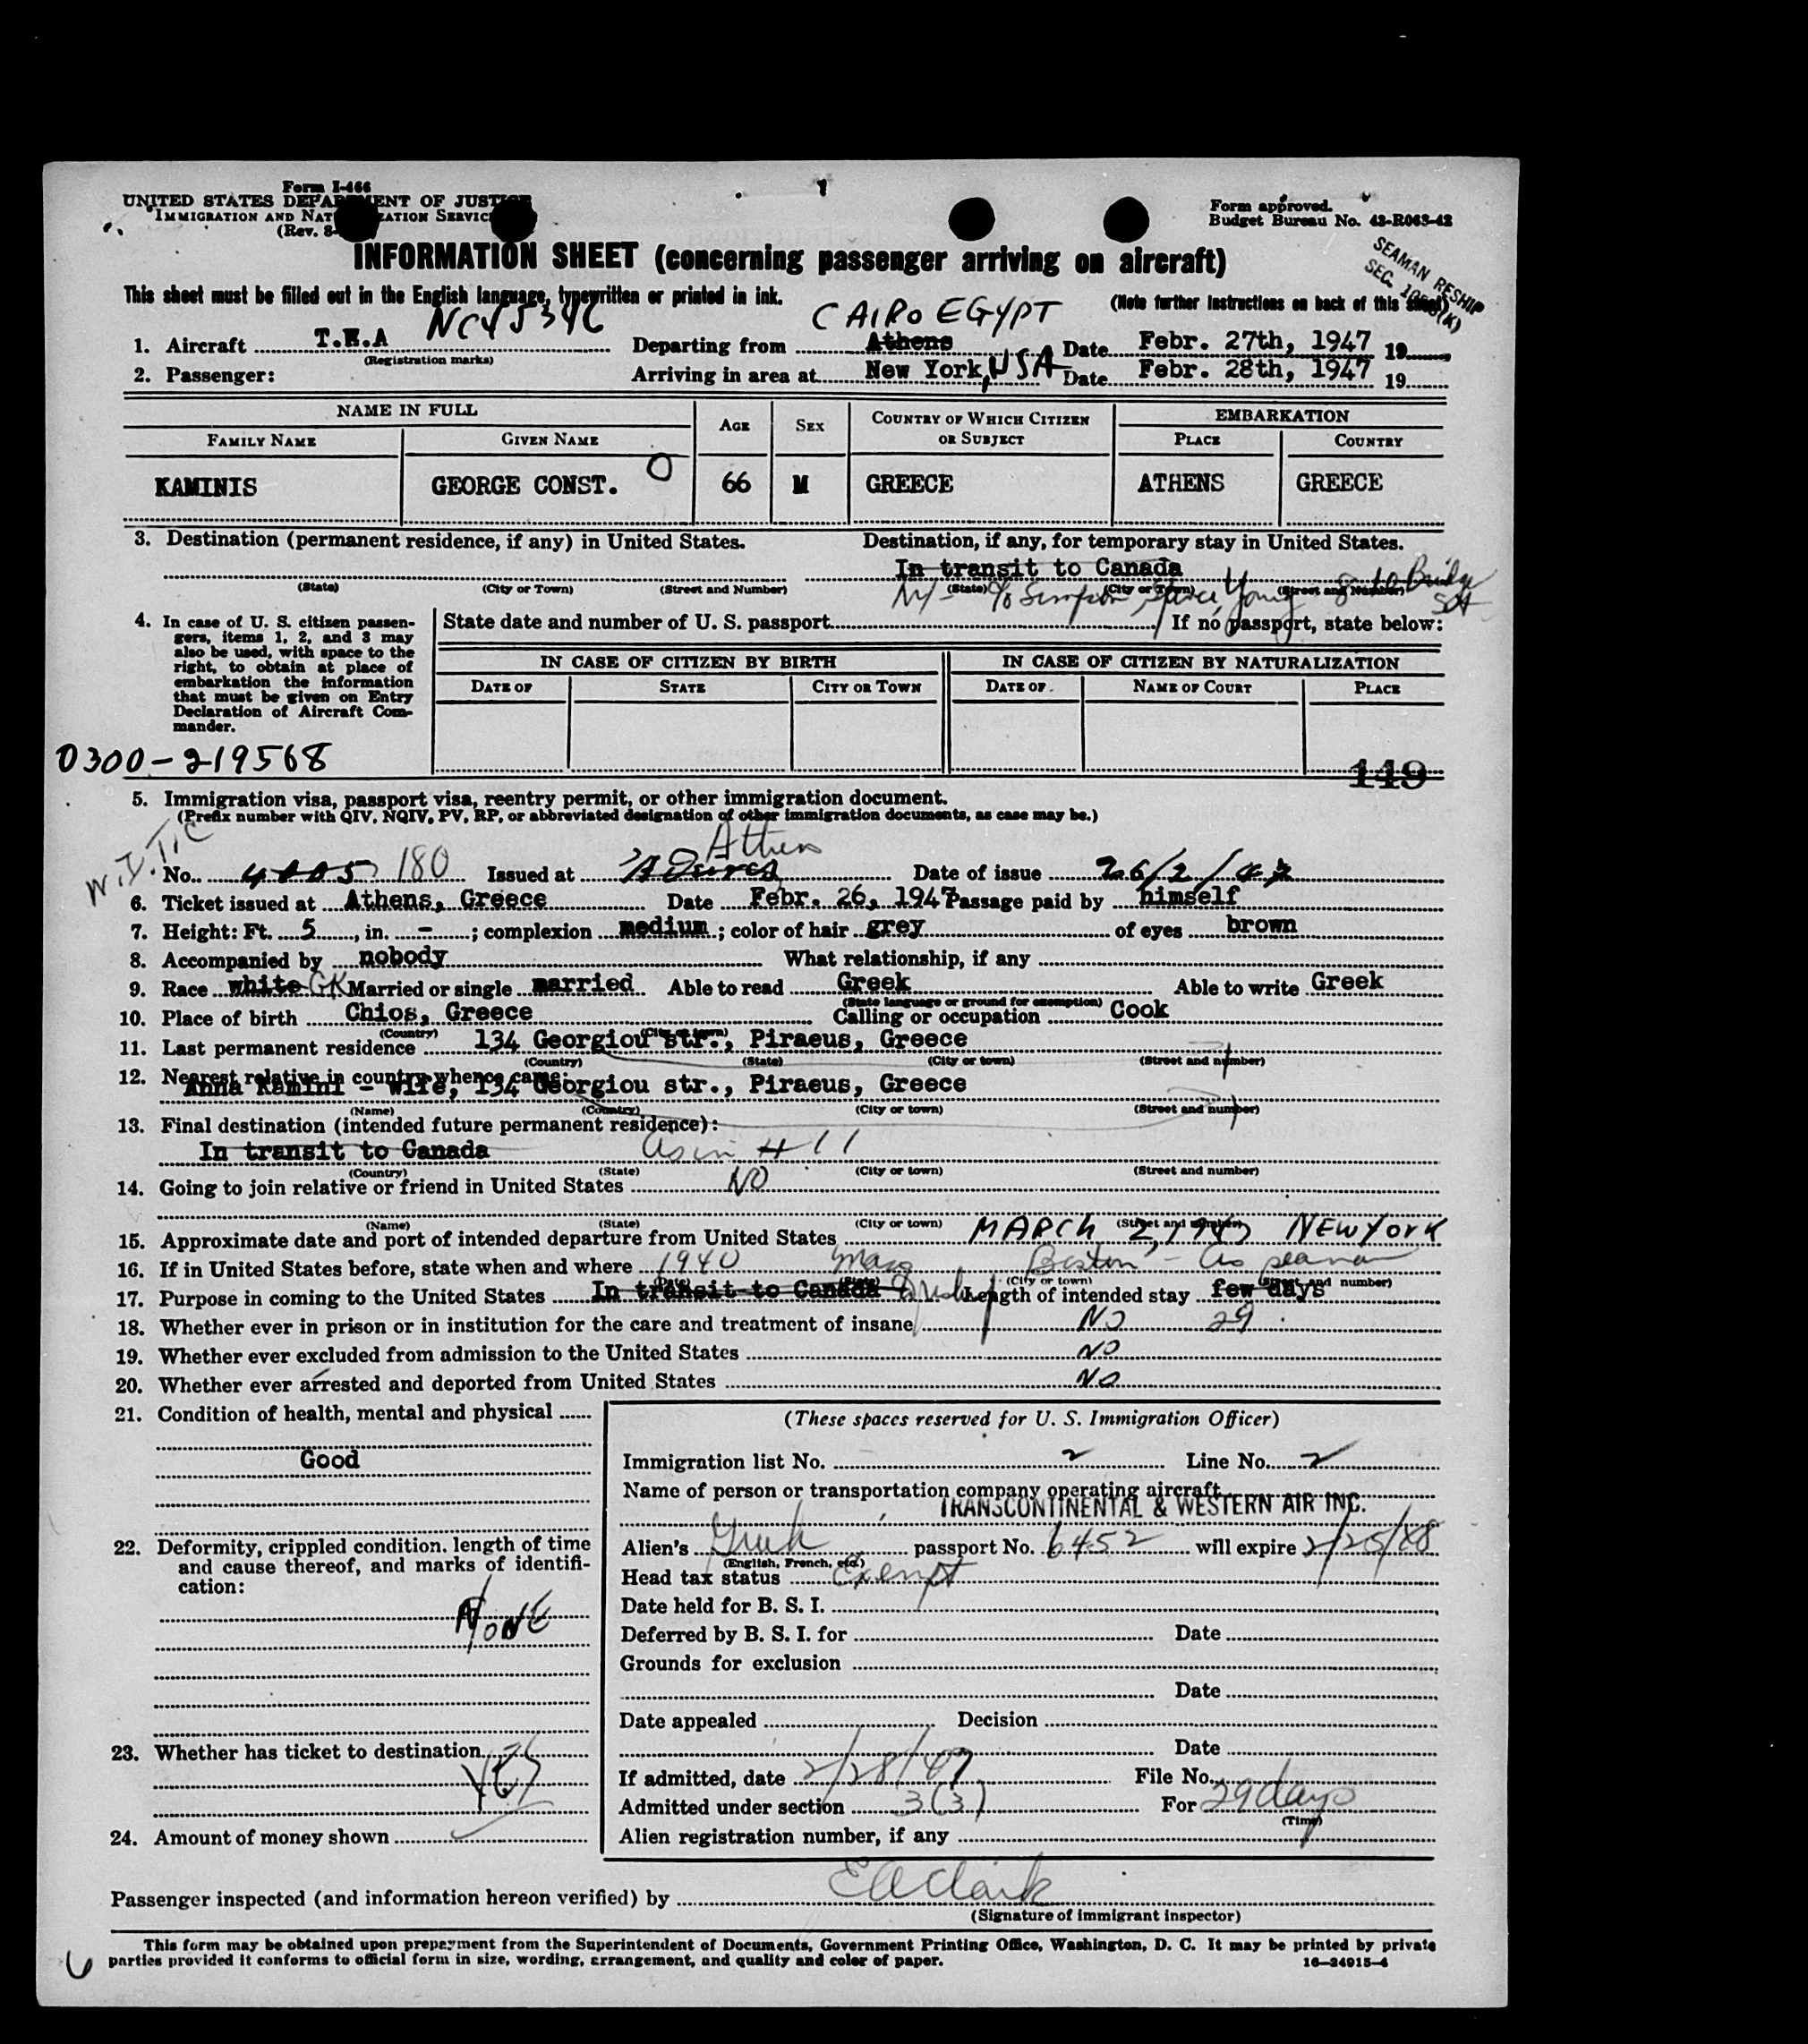 Form I-466
UNITED STATES DEPARTMENT OF JUSTICE
IMMIGRATION AND NATURALIZATION SERVICE
(Rev. 8-
Form approved.
Budget Bureau No. 43-R063-42
INFORMATION SHEET (concerning passenger arriving on aircraft)
SEAMAN RESHIP
SEC. (K)
This sheet must be filled out in the English language, typewritten or printed in ink.
(Note further instructions on back of this sheet)
CAIRO EGYPT
1. Aircraft T.W.A NC45346 Departing from Athens Date Febr. 27th, 1947 19
(Registration marks)
2. Passenger: Arriving in area at New York, USA Date Febr. 28th, 1947 19
NAME IN FULL AGE SEX COUNTRY OF WHICH CITIZEN OR SUBJECT EMBARKATION
FAMILY NAME GIVEN NAME PLACE COUNTRY
KAMINIS GEORGE CONST. O 66 M GREECE ATHENS GREECE
3. Destination (permanent residence, if any) in United States. Destination, if any, for temporary stay in United States.
In transit to Canada
(State) (City or Town) (Street and Number) (State) (City or Town) (Street and Number)
NY - c/o Simpson, Spence, Young 8-10 Bridge St
4. In case of U. S. citizen passengers, items 1, 2, and 3 may also be used, with space to the right, to obtain at place of embarkation the information that must be given on Entry Declaration of Aircraft Commander.
State date and number of U. S. passport If no passport, state below:
IN CASE OF CITIZEN BY BIRTH IN CASE OF CITIZEN BY NATURALIZATION
DATE OF STATE CITY OR TOWN DATE OF NAME OF COURT PLACE
0300-219568
149
5. Immigration visa, passport visa, reentry permit, or other immigration document.
(Prefix number with QIV, NQIV, PV, RP, or abbreviated designation of other immigration documents, as case may be.)
Athens
No. 4005 180 Issued at Date of issue 26/2/47
6. Ticket issued at Athens, Greece Date Febr. 26, 1947 Passage paid by himself
7. Height: Ft. 5, in. -; complexion medium; color of hair grey of eyes brown
8. Accompanied by nobody What relationship, if any
9. Race white GK Married or single married Able to read Greek Able to write Greek
(State language or ground for exemption)
10. Place of birth Chios, Greece Calling or occupation Cook
(Country) (City or town)
11. Last permanent residence 134 Georgiou str., Piraeus, Greece
(Country) (State) (City or town) (Street and number)
12. Nearest relative in country whence came:
Anna Kamini - wife, 134 Georgiou str., Piraeus, Greece
(Name) (Country) (City or town) (Street and number)
13. Final destination (intended future permanent residence):
In transit to Canada as in # 11
(Country) (State) (City or town) (Street and number)
14. Going to join relative or friend in United States NO
(Name) (State) (City or town) (Street and number)
15. Approximate date and port of intended departure from United States MARCH 2, 1947 NEW YORK
16. If in United States before, state when and where 1940 Mass Boston - as seaman
(Date) (State) (City or town) (Street and number)
17. Purpose in coming to the United States In transit to Canada Length of intended stay few days
18. Whether ever in prison or in institution for the care and treatment of insane NO 29
19. Whether ever excluded from admission to the United States NO
20. Whether ever arrested and deported from United States NO
21. Condition of health, mental and physical
Good
(These spaces reserved for U. S. Immigration Officer)
Immigration list No. 2 Line No. 2
Name of person or transportation company operating aircraft
TRANSCONTINENTAL & WESTERN AIR INC.
22. Deformity, crippled condition, length of time and cause thereof, and marks of identification:
NONE
Alien's Greek passport No. 6452 will expire 2/25/48
(English, French, etc.)
Head tax status Exempt
Date held for B. S. I.
Deferred by B. S. I. for Date
Grounds for exclusion
Date
Date appealed Decision
23. Whether has ticket to destination
YES
Date
If admitted, date 2/28/47 File No.
Admitted under section 3(3) For 29 days
(Time)
24. Amount of money shown
Alien registration number, if any
Passenger inspected (and information hereon verified) by E A Clark
(Signature of immigrant inspector)
This form may be obtained upon prepayment from the Superintendent of Documents, Government Printing Office, Washington, D. C. It may be printed by private
parties provided it conforms to official form in size, wording, arrangement, and quality and color of paper.
16—24915-4
6